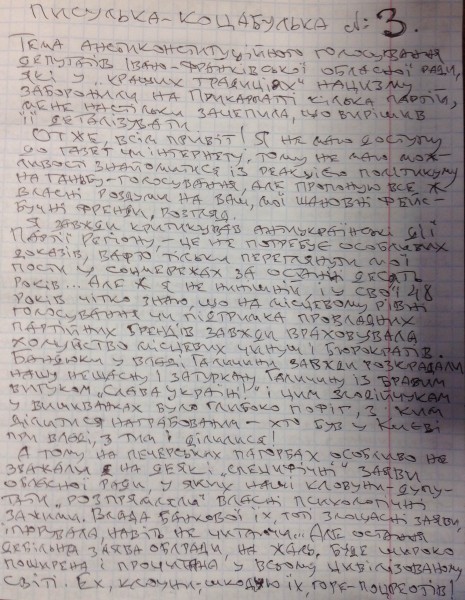 ПИСУЛЬКА-КОЦАБУЛЬКА №: 3.
ТЕМА АНТИКОНСТИТУЦІЙНОГО ГОЛОСУВАННЯ
ДЕПУТАТІВ ІВАНО-ФРАНКІВСЬКОЇ ОБЛАСНОЇ РАДИ,
ЯКІ У „КРАЩИХ ТРАДИЦІЯХ" НАЦИЗМУ
ЗАБОРОНИЛИ НА ПРИКАРПАТТІ КІЛЬКА ПАРТІЙ,
МЕНЕ НАСТІЛЬКИ ЗАЧЕПИЛА, ЩО ВИРІШИВ
ЇЇ ДЕТАЛІЗУВАТИ.
ОТЖЕ, ВСІМ ПРИВІТ! Я НЕ МАЮ ДОСТУПУ
ДО ГАЗЕТ ЧИ ІНТЕРНЕТУ, ТОМУ НЕ МАЮ МОЖ-
ЛИВОСТІ ЗНАЙОМИТИСЯ ІЗ РЕАКЦІЄЮ ПОЛІТИКУМУ
НА ГАНЬБУ-ГОЛОСУВАННЯ, АЛЕ ПРОПОНУЮ ВСЕ Ж
ВЛАСНІ РОЗДУМИ НА ВАШ, МОЇ ШАНОВНІ ФЕЙС-
БУЧНІ ФРЕНДИ, РОЗГЛЯД.
Я ЗАВЖДИ КРИТИКУВАВ АНТИУКРАЇНСЬКІ ДІЇ
ПАРТІЇ РЕГІОНІВ, – ЦЕ НЕ ПОТРЕБУЄ ОСОБЛИВИХ
ДОКАЗІВ, ВАРТО ТІЛЬКИ ПЕРЕГЛЯНУТИ МОЇ
ПОСТИ У СОЦМЕРЕЖАХ ЗА ОСТАННІ ДЕСЯТЬ
РОКІВ... АЛЕ Ж Я НЕ НИНІШНІЙ, І У СВОЇ 48
РОКІВ ЧІТКО ЗНАЮ, ЩО НА МІСЦЕВОМУ РІВНІ
ГОЛОСУВАННЯ ЧИ ПІДТРИМКА ПРОВЛАДНИХ
ПАРТІЙНИХ ТРЕНДІВ ЗАВЖДИ ВРАХОВУВАЛА
ХОЛУЙСТВО МІСЦЕВИХ ЧИНУШ І БЮРОКРАТІВ.
БАНДЮКИ У ВЛАДІ ГАЛИЧИНУ ЗАВЖДИ РОЗКРАДАЛИ
НАШУ НЕЩАСНУ І ЗАТУРКАНУ ГАЛИЧИНУ ІЗ БРАВИМ
ВИГУКОМ „СЛАВА УКРАЇНІ!" І ЦИМ ЗЛОДІЙЧУКАМ
У ВИШИВАНКАХ БУЛО ГЛИБОКО ПОФІГ, З КИМ
ДІЛИТИСЯ НАГРАБОВАНИМ – ХТО БУВ У КИЄВІ
ПРИ ВЛАДІ, З ТИМ І ДІЛИЛИСЯ!
А ТОМУ НА ПЕЧЕРСЬКИХ ПАГОРБАХ ОСОБЛИВО НЕ
ЗВАЖАЛИ НА ДЕЯКІ „СПЕЦИФІЧНІ" ЗАЯВИ
ОБЛАСНОЇ РАДИ, У ЯКИХ НАШІ КЛОУНИ-ДУПУ-
ТАТИ „РОЗПРЯМЛЯЛИ" ВЛАСНІ ПСИХОЛОГІЧНІ
ЗАЖИМИ. ВЛАДА БАНКОВОЇ ЇХ, ТОТІ ЗЛОЩАСНІ ЗАЯВИ,
ІГНОРУВАЛА, НАВІТЬ НЕ ЧИТАЮЧИ... АЛЕ ОСТАННЯ
ДЕБІЛЬНА ЗАЯВА ОБЛРАДИ, НА ЖАЛЬ, БУДЕ ШИРОКО
ПОШИРЕНА І ПРОЧИТАНА У ВСЬОМУ ЦИВІЛІЗОВАНОМУ
СВІТІ. ЕХ, КЛОУНИ-ШКОДУЮ ЇХ, ГОРЕ-ПОЦРЕОТІВ!